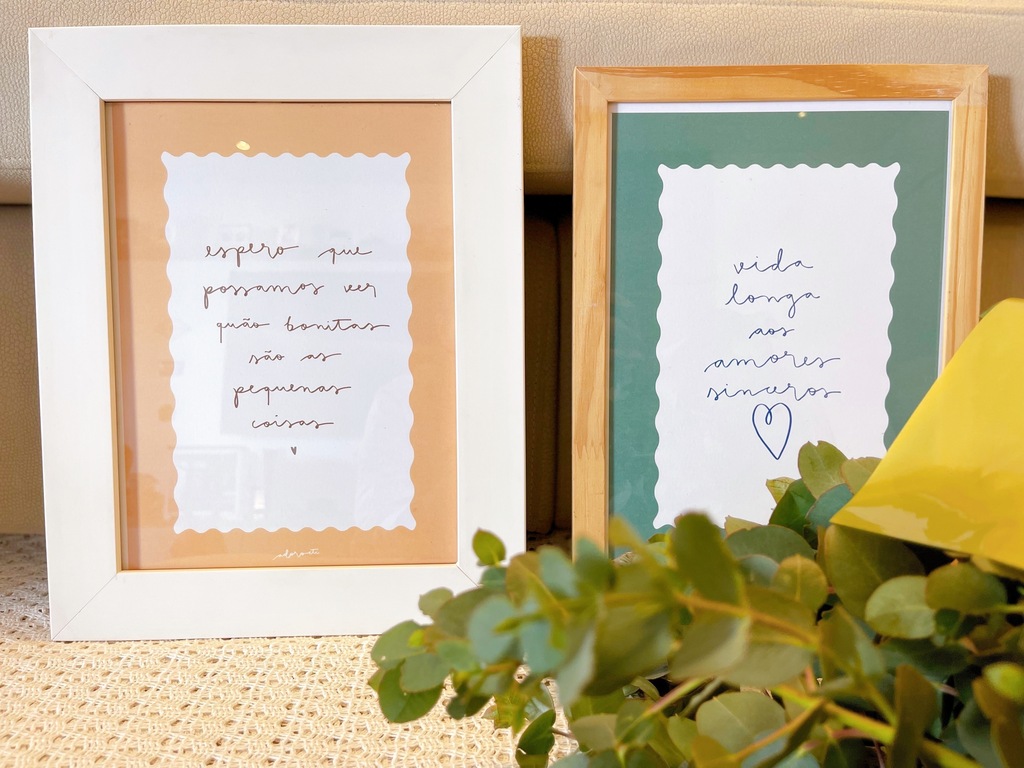 espero que
possamos ver
quão bonitas
são as
pequenas
coisas
vida
longa
aos
amores
sinceros